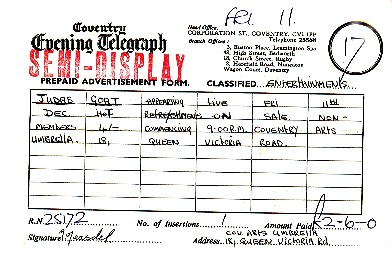 FRI 11
Coventry
Evening Telegraph
Head Office,
CORPORATION ST., COVENTRY. CV1 1FP
Telephone 25588
Branch Offices:
3, Euston Place, Leamington Spa
48, High Street, Bedworth
18, Church Street, Rugby
8, Horsefair Road, Nuneaton
Wagon Court, Daventry
17
SEMI-DISPLAY
PREPAID ADVERTISEMENT FORM. CLASSIFIED ENTERTAINMENTS
JUDAS GOAT APPEARING LIVE FRI 11TH
DEC. HOT REFRESHMENTS ON SALE. NON-
MEMBERS 4/- COMMENCING 9.00P.M. COVENTRY ARTS
UMBRELLA 18, QUEEN VICTORIA ROAD.
R.N. 25172 No. of Insertions 1 Amount Paid £2-6-0
Signature Address COV. ARTS UMBRELLA
18, QUEEN VICTORIA Rd.